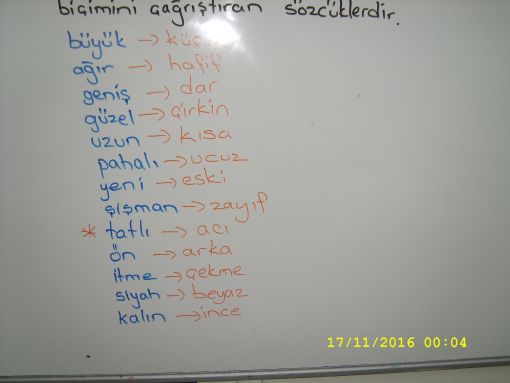 biçimini çağrıştıran sözcüklerdir.
büyük → küçük
ağır → hafif
geniş → dar
güzel → çirkin
uzun → kısa
pahalı → ucuz
yeni → eski
şişman → zayıf
* tatlı → acı
ön → arka
itme → çekme
siyah → beyaz
kalın → ince
17/11/2016 00:04